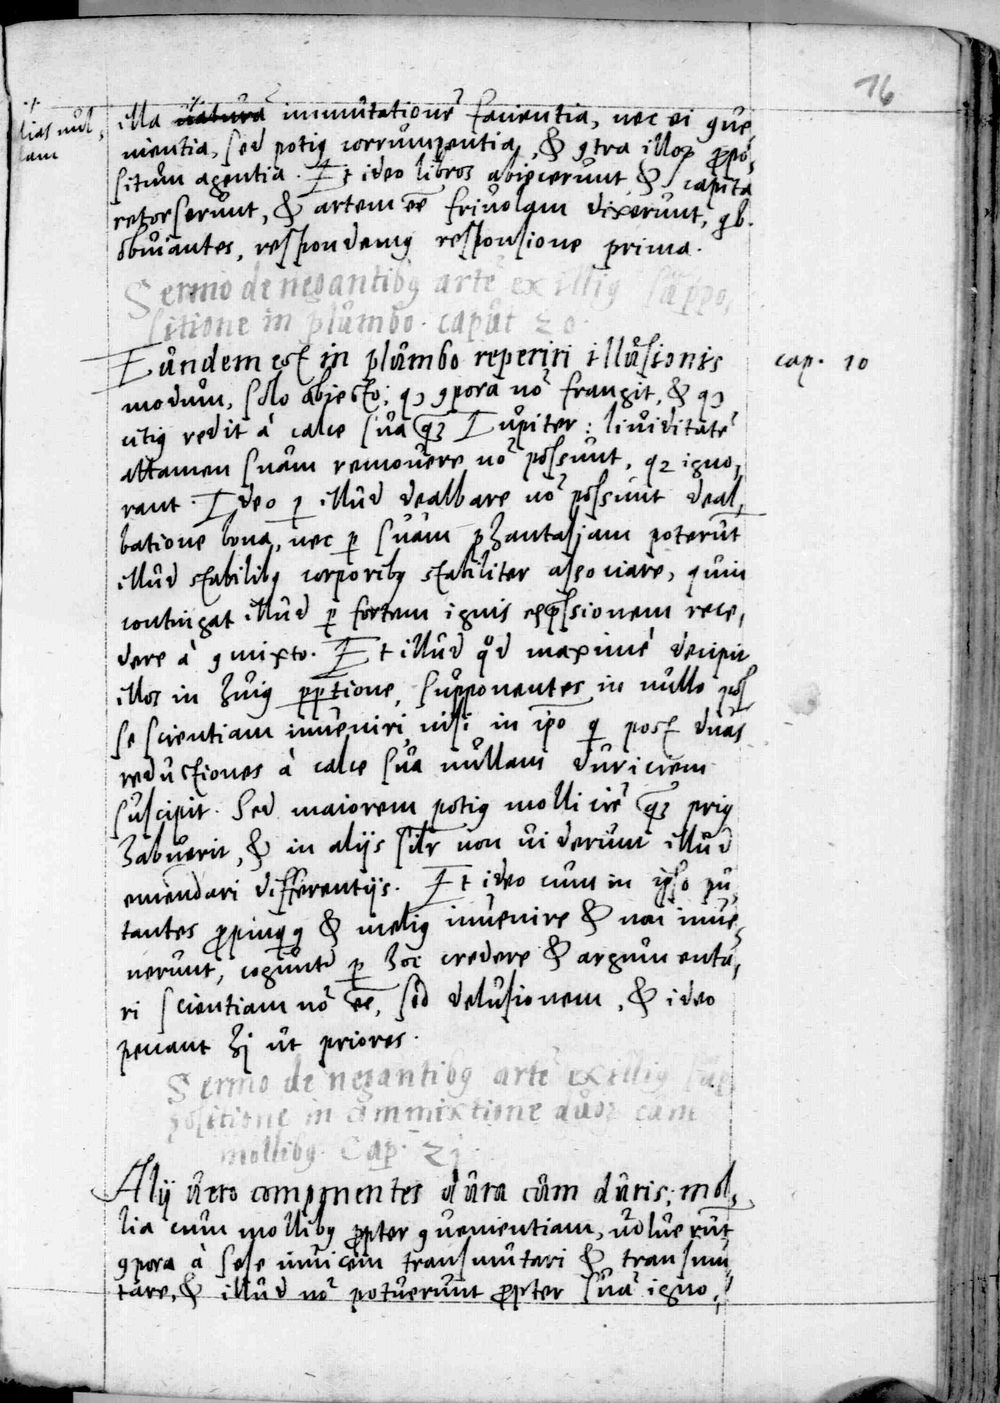 76
illa natura immutatione fauentia, nec ei 9ue,
nientia, sed potig corrumpentia, & 9tra illoꝝ ꝓpo,
situm agentia. Et ideo libros abiecerunt & capita
retorserunt, & artem ee friuolam dixerunt, qb.
obuiantes, respondemg responsione prima.
Sermo de negantibg arte ex illig suppo,
sitione in plumbo. caput 20
Eundem est in plumbo reperiri illusionis
cap. 10
modum, solo abiecto; qꝫ 9pora no frangit, & qꝫ
citig redit à calce sua qꝫ Iupiter: liuiditate
attamen suam remouere no possunt, qꝫ igno,
rant. Ideo ꝑ illud dealbare no possunt deal,
batione bona, nec ꝑ suam phantasiam poterut
illud stabilibg corporibg stabiliter associare, quin
contingat illud ꝑ fortem ignis expssionem rece,
dere à 9mixto. Et illud qd maxime decipit
illos in huig pptione, supponentes in nullo pos
se scientiam inueniri, nisi in ipo q post duas
reductiones à calce sua nullam duriciem
suscipit. Sed maiorem potig mollicie qꝫ prig
habuerit, & in alijs silr non uiderunt illud
emendari differentijs. Et ideo cum in ipso pu,
tantes ꝓpinqg & melig inuenire & non inue,
nerunt, cogunt ꝑ hoc credere & argumenta,
ri scientiam no ee, sed delusionem, & ideo
penant hj ut priores.
Sermo de negantibg arte ex illig sup
positione in commixtione duoꝝ cum
mollibg. Cap. 21
Alij uero componentes dura cum duris; mol,
lia cum mollibg ꝓpter 9uenientiam, uoluerunt
9pora à sese inuicem transmutari & transmu
tare, & illud no potuerunt ꝓpter sua igno,